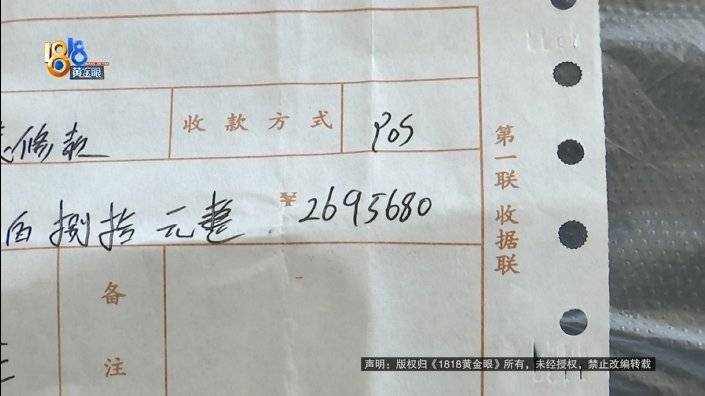 1818
黄金眼
修款
收款方式
POS
佰捌拾元整
¥2695680
备
注
第一联 收据联
声明：版权归《1818黄金眼》所有，未经授权，禁止改编转载